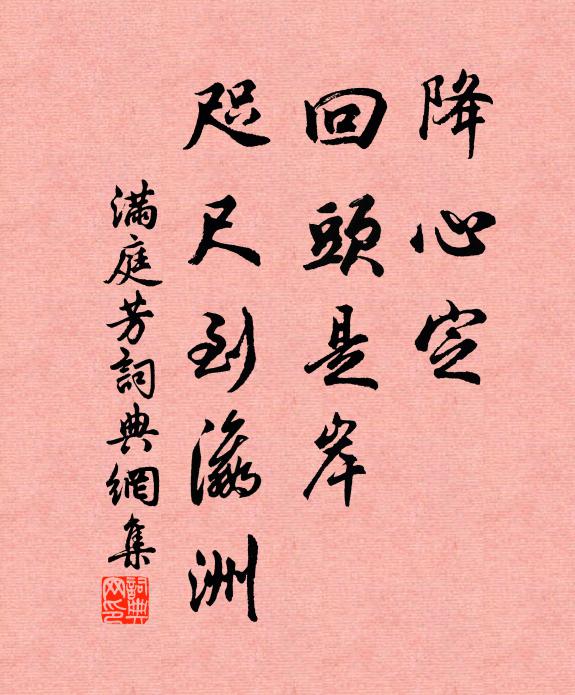 降心定
回頭是岸
咫尺到瀛洲
滿庭芳詞典網集
詞典网印